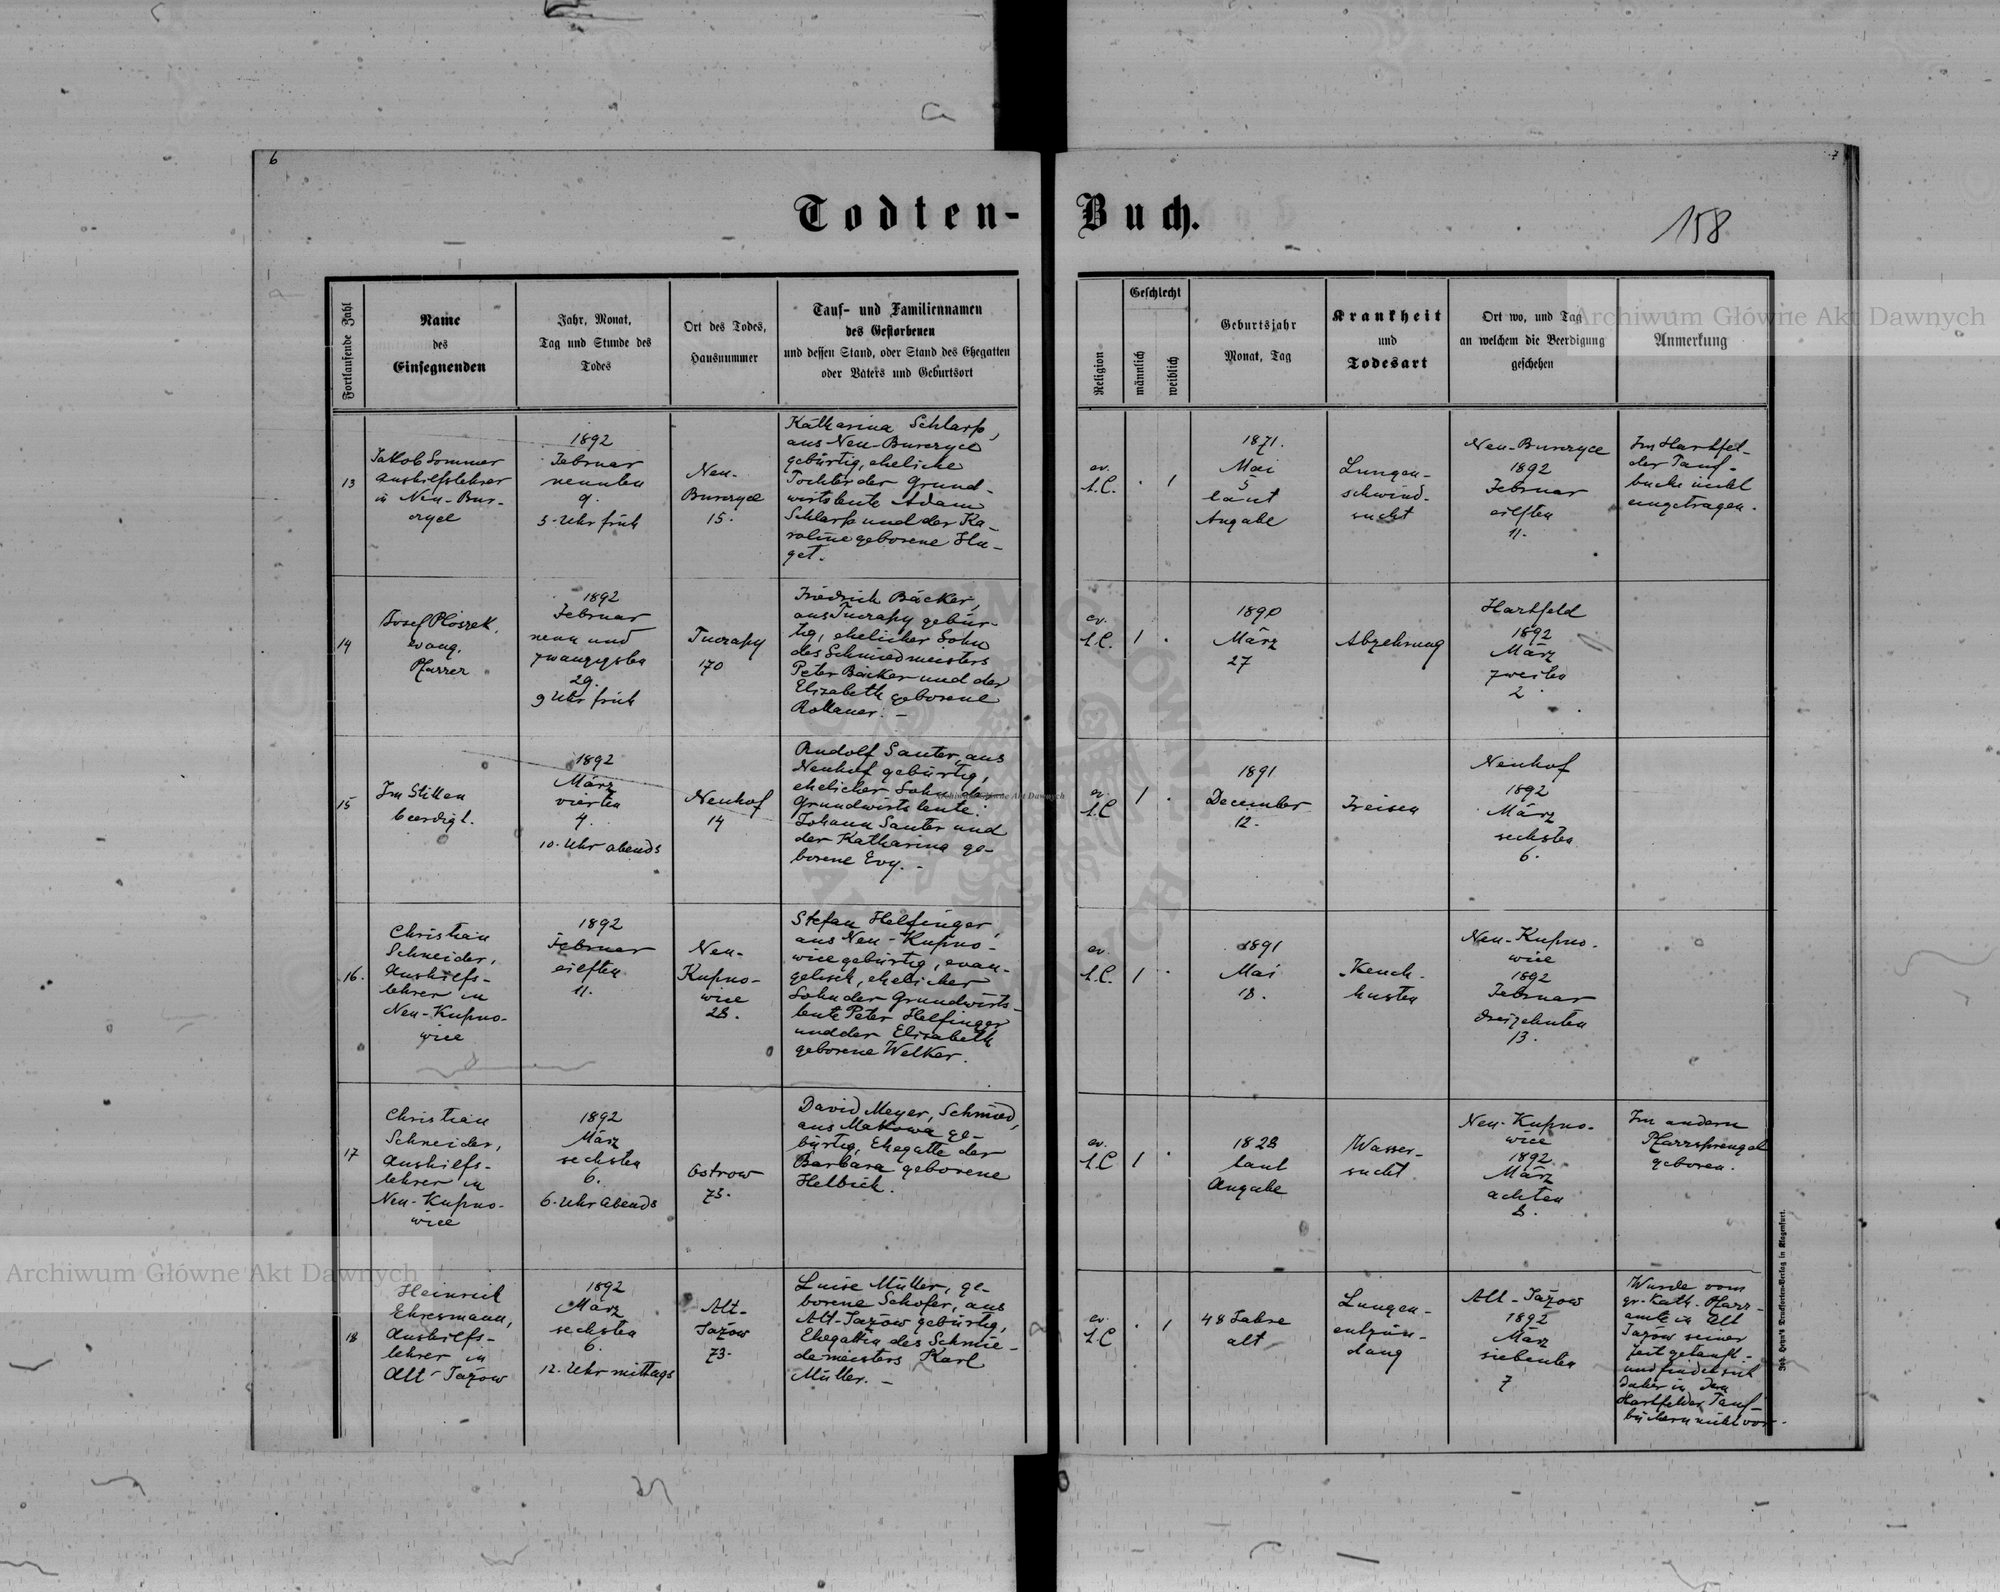 6
7
Todten-Buch.
158
Fortlaufende Zahl
Name
des
Einsegnenden
Jahr, Monat,
Tag und Stunde des
Todes
Ort des Todes,
Hausnummer
Tauf- und Familiennamen
des Gestorbenen
und dessen Stand, oder Stand des Ehegatten
oder Vaters und Geburtsort
Religion
Geschlecht
männlich
weiblich
Geburtsjahr
Monat, Tag
Krankheit
und
Todesart
Ort wo, und Tag
an welchem die Beerdigung
geschehen
Anmerkung
13
Jakob Sommer
Aushilfslehrer
in Neu-Bur-
czyce
1892
Februar
neunten
9.
5. Uhr früh
Neu-
Burczyce
15.
Katharina Schlarp,
aus Neu-Burczyce
gebürtig, eheliche
Tochter der Grund-
wirtsleute Adam
Schlarp und der Ka-
roline geborene Hu-
get.
ev.
A.C.
. 1
1871.
Mai
5
laut
Angabe
Lungen-
schwind-
sucht
Neu-Burczyce
1892
Februar
eilften
11.
Im Hartfel-
der Tauf-
buche nicht
eingetragen.
14
Josef Ploszek,
evang.
Pfarrer
1892
Februar
neun und
zwanzigsten
29.
9 Uhr früh
Tuczapy
170
Friedrich Bäcker,
aus Tuczapy gebür-
tig, ehelicher Sohn
des Schmiedmeisters
Peter Bäcker und der
Elizabeth geborene
Rollauer. -
ev.
A.C.
1 .
1890
März
27
Abzehrung
Hartfeld
1892
März
zweiten
2.
15
Im Stillen
beerdigt.
1892
März
vierten
4.
10. Uhr abends
Neuhof
14
Rudolf Sauter, aus
Neuhof gebürtig,
ehelicher Sohn der
Grundwirtsleute:
Johann Sauter und
der Katharina ge-
borene Evy. -
ev.
A.C
1 .
1891
December
12.
Freisen
Neuhof
1892
März
sechsten
6.
16.
Christian
Schneider,
Aushilfs-
lehrer in
Neu-Kupno-
wice
1892
Februar
eilften
11.
Neu-
Kupno-
wice
28.
Stefan Helfinger,
aus Neu-Kupno-
wice gebürtig, evan-
gelisch, ehelicher
Sohn der Grundwirts-
leute Peter Helfinger
und der Elisabeth
geborene Welker.
ev.
A.C.
1 .
1891
Mai
18.
Keuch-
husten
Neu-Kupno-
wice
1892
Februar
dreizehnten
13.
17
Christian
Schneider,
Aushilfs-
lehrer in
Neu-Kupno-
wice
1892
März
sechsten
6.
6. Uhr abends
Ostrow
73.
David Meyer, Schmied,
aus Makowa ge-
bürtig, Ehegatte der
Barbara geborene
Helbich.
ev.
A.C
1 .
1828
laut
Angabe
Wasser-
sucht
Neu-Kupno-
wice
1892
März
achten
8.
Im andern
Pfarrsprengel
geboren.
18
Heinrich
Ehresmann,
Aushilfs-
lehrer in
Alt-Jazow
1892
März
sechsten
6.
12. Uhr mittags
Alt-
Jazow
73.
Luise Müller, ge-
borene Schofer, aus
Alt-Jazow gebürtig,
Ehegattin des Schmie-
demeisters Karl
Müller. -
ev.
A.C
. 1
48 Jahre
alt
Lungen-
entzün-
dung
Alt-Jazow
1892
März
siebenten
7
Wurde vom
gr. kath. Pfarr-
amte in Alt
Jazow seiner
Zeit getauft
und findet sich
daher in den
Hartfelder Tauf-
büchern nicht vor.
Joh. Heyn's Drucksorten-Verlag in Klagenfurt.
Archiwum Główne Akt Dawnych
Archiwum Główne Akt Dawnych
Archiwum Główne Akt Dawnych